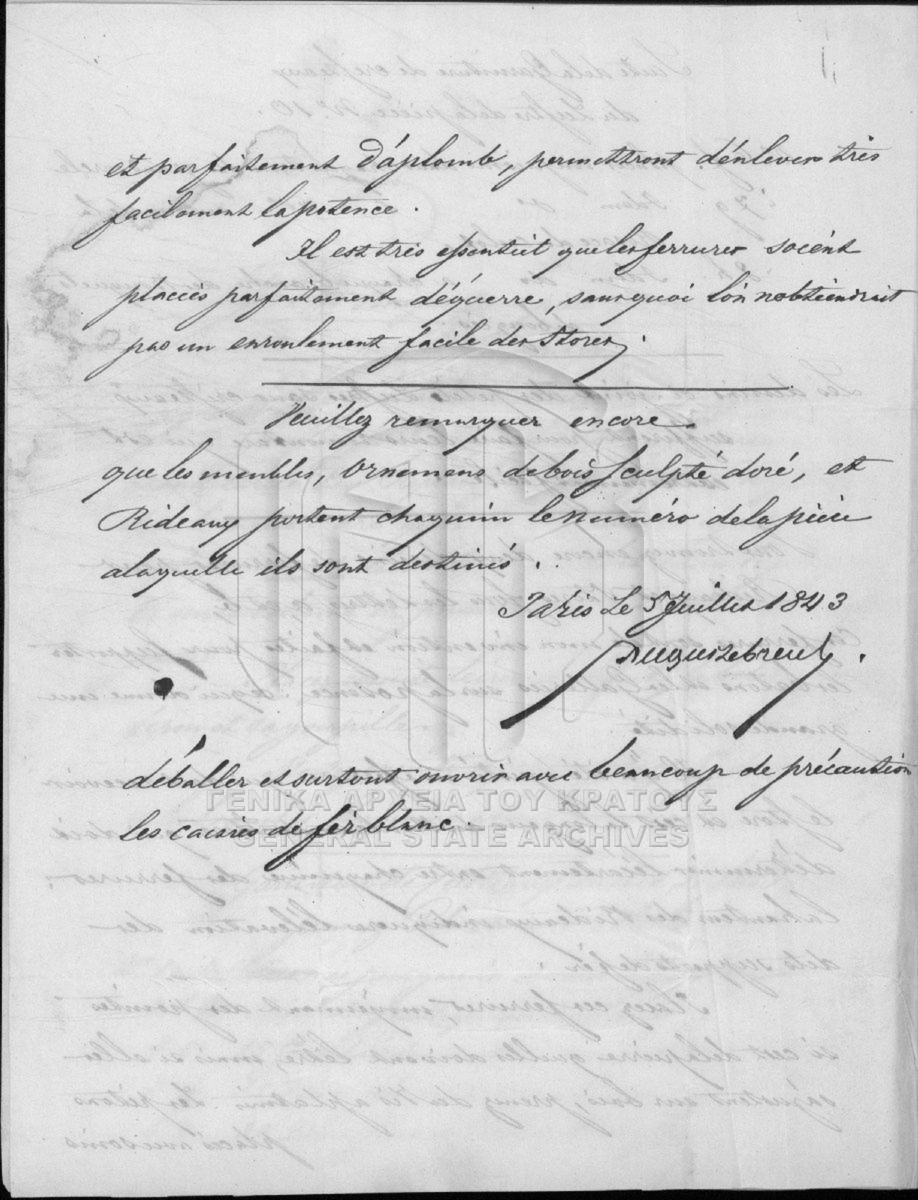 et parfaitement d'áplomb, permettront d'énlever très
facilement la potence.
Il est très essentiel que les ferrures soient
placées parfaitement d'équerre, sans quoi l'on n'obtiendrait
pas un enroulement facile des Stores.
Veuillez remarquer encore
que les meubles, Ornemens de bois Sculpté doré, et
Rideaux portent chaqu'un le numéro de la pièce
a laquelle ils sont destinés.
Paris Le 5 Juillet 1843
déballer et surtout ouvrir avec beaucoup de précaution
ΓΕΝΙΚΑ ΑΡΧΕΙΑ ΤΟΥ ΚΡΑΤΟΥΣ
les caisses de fer blanc.
GENERAL STATE ARCHIVES